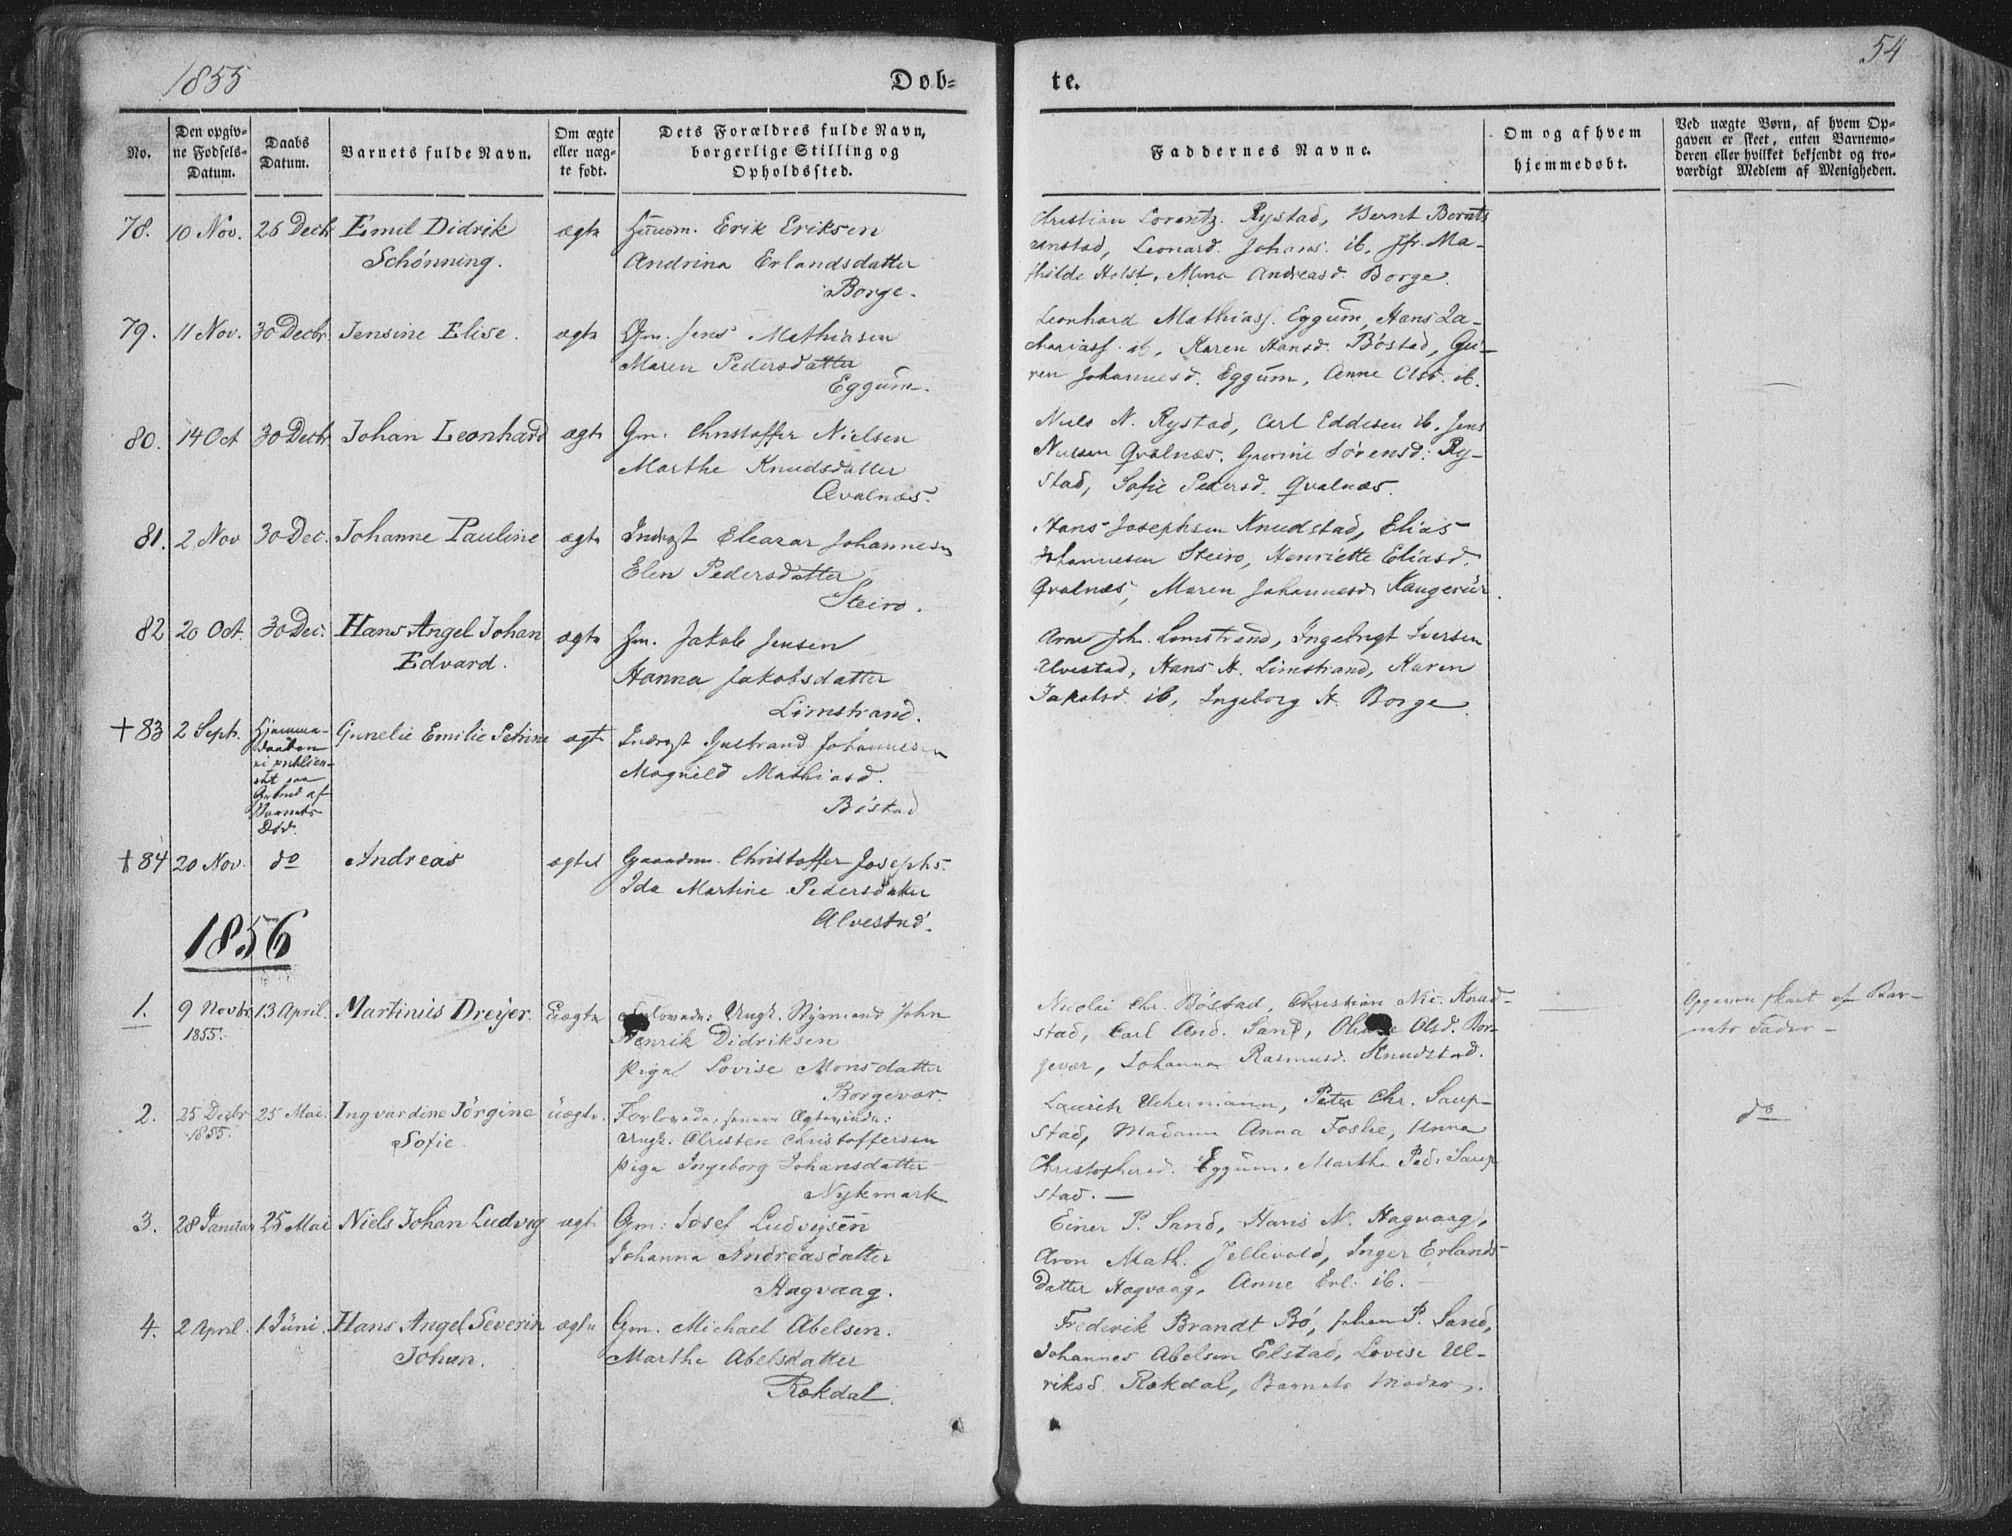 1855
Døb-
te.
54
No.
Den opgiv-
ne Fødsels-
Datum.
Daabs
Datum.
Barnets fulde Navn.
Om ægte
eller uæg-
te født.
Dets Forældres fulde Navn,
borgerlige Stilling og
Opholdssted.
Faddernes Navne.
Om og af hvem
hjemmedøbt.
Ved uægte Børn, af hvem Op-
gaven er skeet, enten Barnemo-
deren eller hvilket bekjendt og tro-
værdigt Medlem af Menigheden.
78. 10 Nov. 26 Decbr Emil Didrik
Schönning.
ægte
Huusm. Erik Eriksen
Andrina Erlandsdatter
Borge.
Christian Lorentz. Rystad, Bernt Bernts
Leonard Johans. ib. Jfr. Ma-
thilde Holst, Mina Andreasd. Borge.
79. 11 Nov. 30 Decbr. Jensine Elise.
ægte
Gm. Jens Mathiasen
Maren Pedersdatter
Eggum.
Leonhard Mathiass. Eggum, Hans Za-
chariass. ib, Karen Hansd. Böstad, Gu-
ren Johannesd. Eggum, Anne Olsd. ib.
80. 14 Oct 30 Decbr Johan Leonhard
ægte
Gm. Christoffer Nielsen
Marthe Knudsdatter
Qvalnæs.
Niels N. Rystad, Carl Eddesen ib, Jens
Nielsen Qvalnæs. Gurine Sörensd. Ry-
stad, Sofie Pedersd. Qvalnæs.
81. 2 Nov 30 Dec. Johanne Pauline
ægte
Inderst Eleazar Johannesen
Elen Pedersdatter
Steiro.
Hans Josephsen Knudstad, Elias
Johannesen Steiro, Henriette Eliasd.
Qvalnæs, Maren Johannesd. Haugerür.
82 20 Oct. 30 Dec. Hans Angel Johan
Edvard.
ægte
Hm. Jakob Jensen
Hanna Jakobsdatter
Limstrand.
Arne Joh. Limstrand, Ingebrigt Iversen
Alvestad, Hans H. Limstrand, Karen
Jakobsd. ib, Ingeborg H. Borge
+ 83 2 Sept. Hjemme-
daaben
ei publice-
ret paa
Grund af
Barnets
Död.
Gunelie Emilie Petrine
ægte
Inderst Johannesen
Magnild Mathiasd.
Böstad
+ 84 20 Nov. do Andreas
ægtef
Gaardm. Christoffer Josephs.
Ida Martine Pedersdatter
Alvestad.
1856
1. 9 Novbr 13 April. Martinus Dreyer.
1855.
Uægte
Forlovede: Ungk. Styrmand John
Henrik Didriksen
Pige Lovise Monsdatter
Borgevær.
Nicolai Chr. Böstad, Christian Nic. Knud-
stad, Carl And. Sand, Olsd. Bor-
gevær, Johanna Rasmusd. Knudstad.
Opgaven skeet af Bar-
nets Fader -
2. 25 Decbr 25 Mai. Ingvardine Jörgine
1855.
Sofie.
uægte.
Forlovede, senere Ægteviede:
Ungk: Christen Christoffersen
Pige Ingeborg Johansdatter
Nykmark
Lauritz Uchermann, Peter Chr. Saup-
stad, Madam Anna Foslie, Anna
Christophersd. Eggum. Marthe Ped: Saup
stad. -
do
3. 28 Januar 25 Mai Niels Johan Ludvig
ægte
Gm: Josef Ludvigsen
Johanna Andreasdatter
Hagvaag.
Einer P. Sand, Hans N. Hagvaag,
Aron Math. Jellevold, Inger Erlands
datter Hagvaag, Anne Erl. ib.
4. 2 April. 1 Juni. Hans Angel Severin
Johan.
ægte
Gm. Michael Abelsen.
Marthe Abelsdatter
Rökdal.
Frederik Brandt Bö, Johan P. Sand,
Johannes Abelsen Elstad, Lovise Ul-
riksd. Rökdal, Barnets Moder.